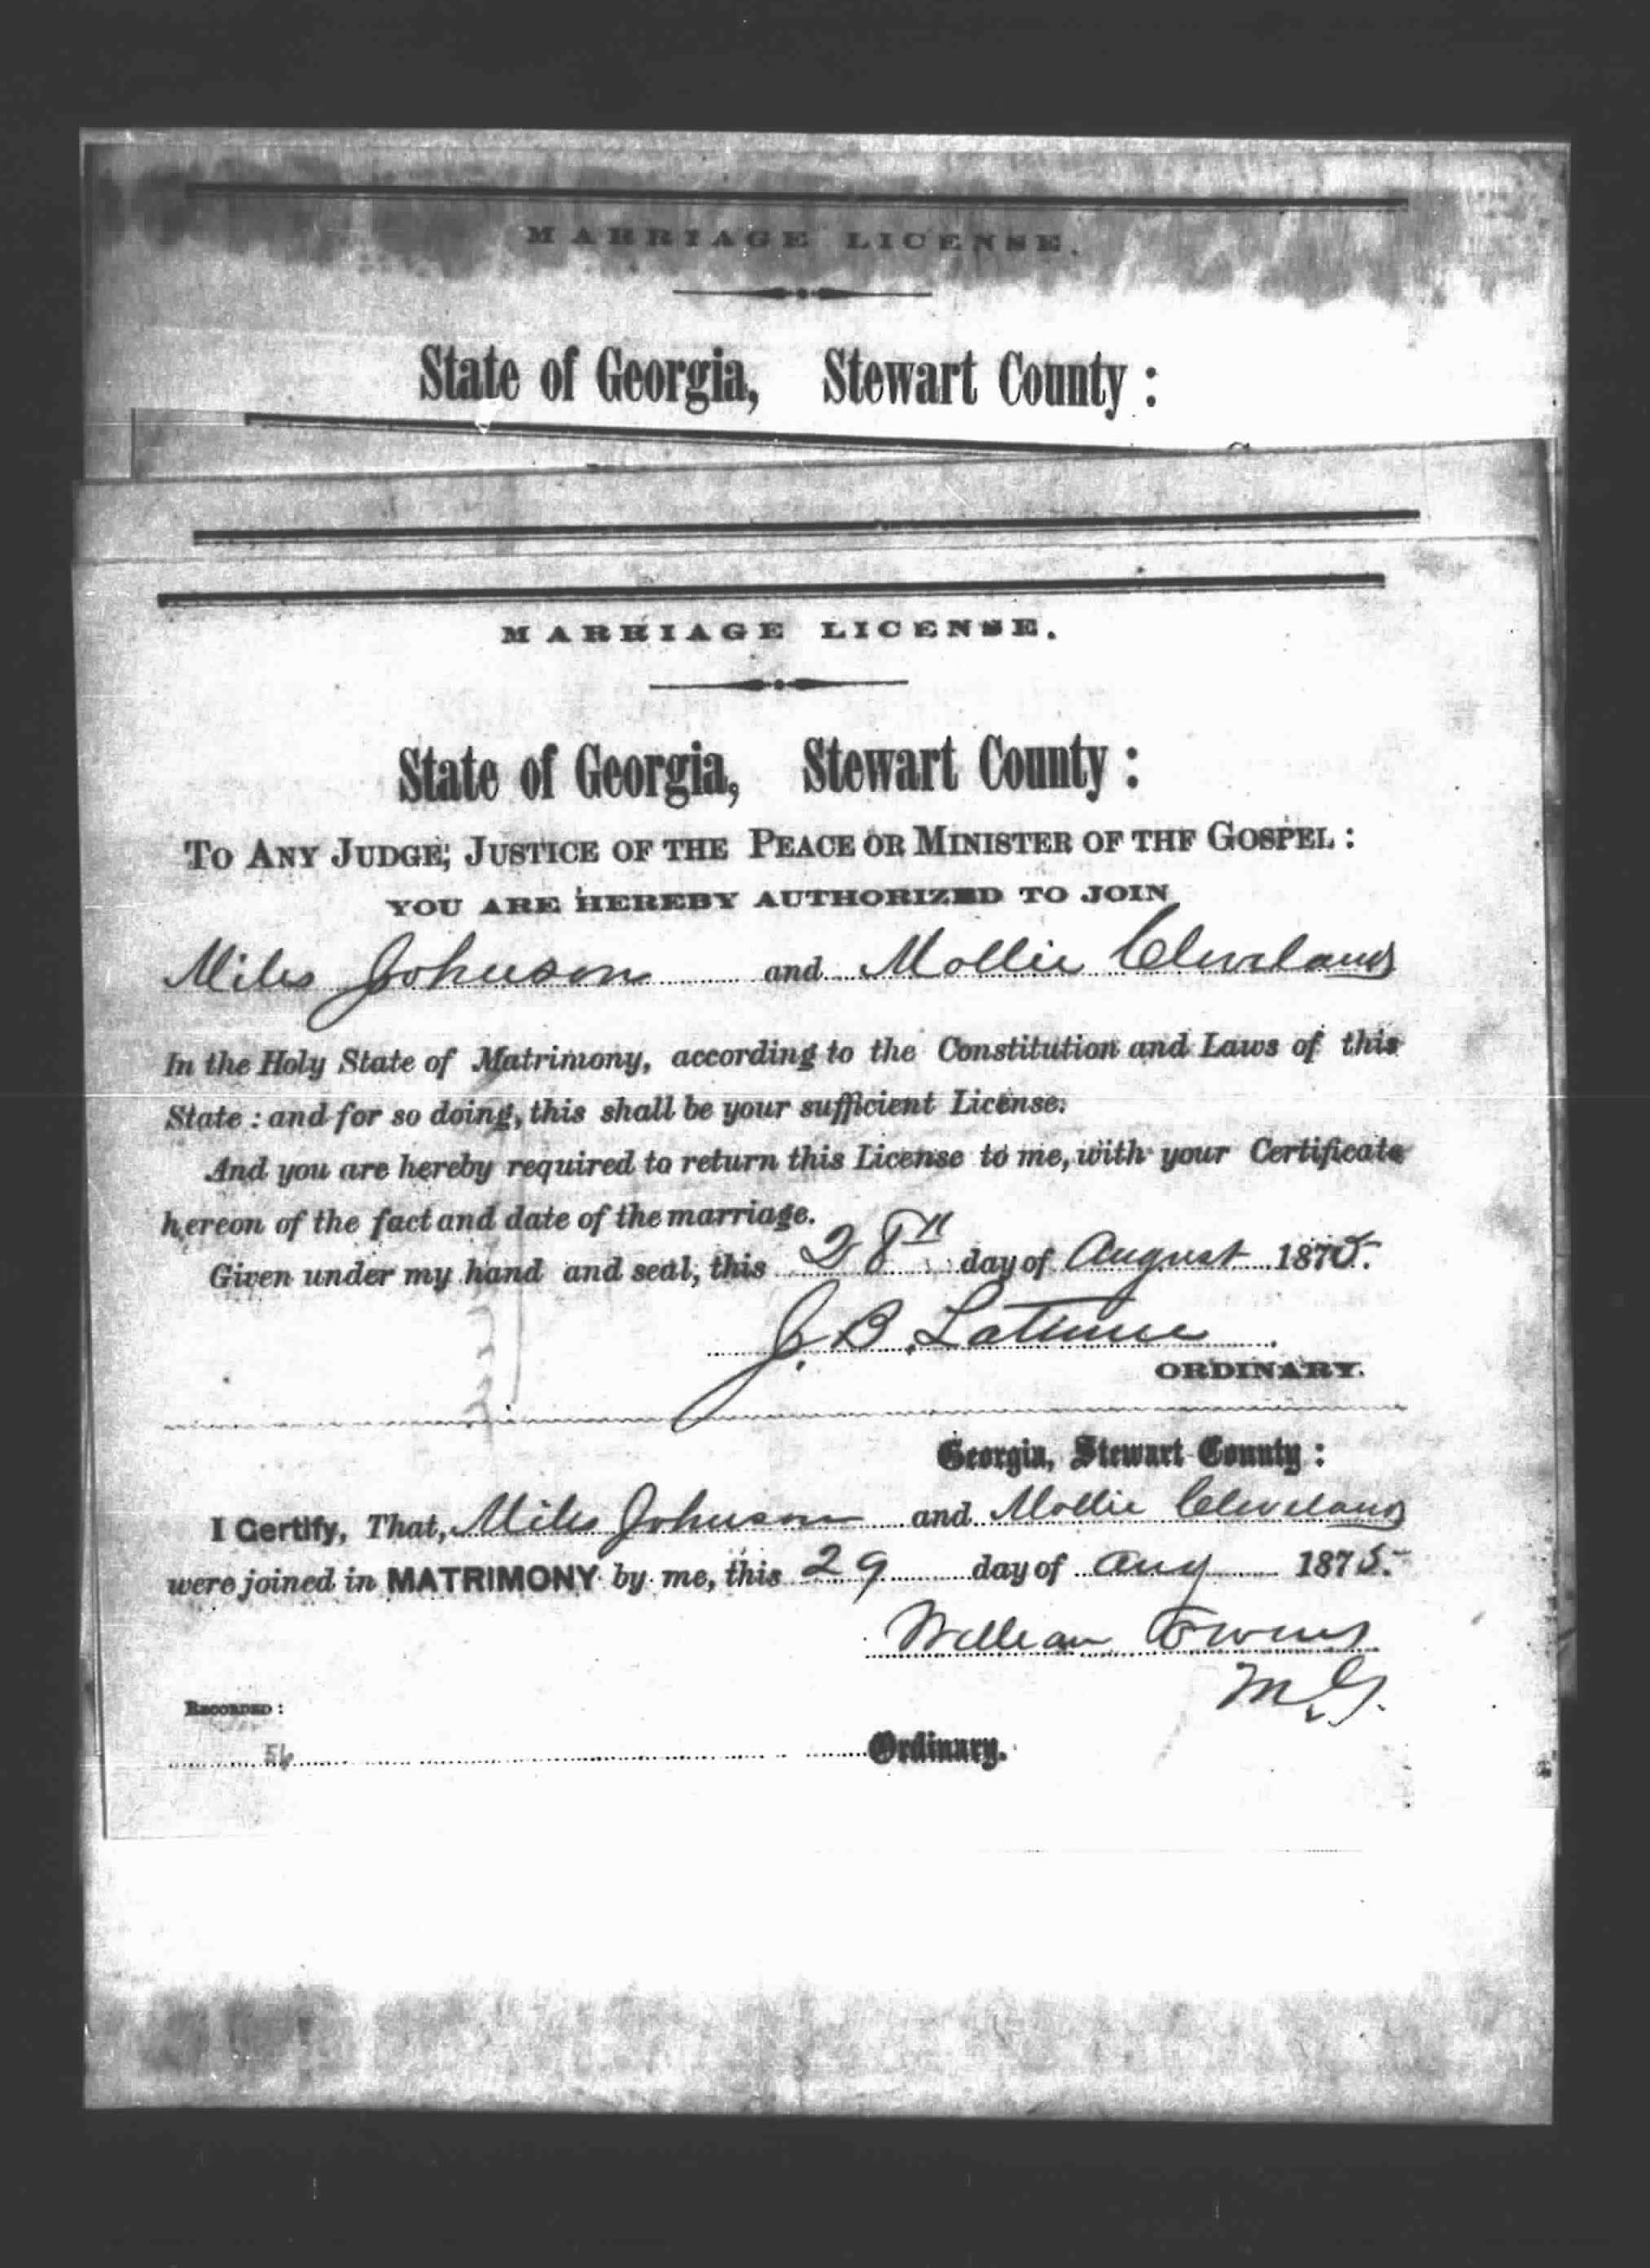 MARRIAGE LICENSE.
State of Georgia, Stewart County :
MARRIAGE LICENSE.
State of Georgia, Stewart County :
TO ANY JUDGE; JUSTICE OF THE PEACE OR MINISTER OF THE GOSPEL :
YOU ARE HEREBY AUTHORIZED TO JOIN
Miles Johnson and Mollie Cleveland
In the Holy State of Matrimony, according to the Constitution and Laws of this
State : and for so doing, this shall be your sufficient License.
And you are hereby required to return this License to me, with your Certificate
hereon of the fact and date of the marriage.
Given under my hand and seal, this 28th day of August 1875.
J. B. Latimer
ORDINARY.
Georgia, Stewart County :
I Certify, That, Miles Johnson and Mollie Cleveland
were joined in MATRIMONY by me, this 29 day of Aug 1875.
William Owens
M.G.
RECORDED :
56 Ordinary.